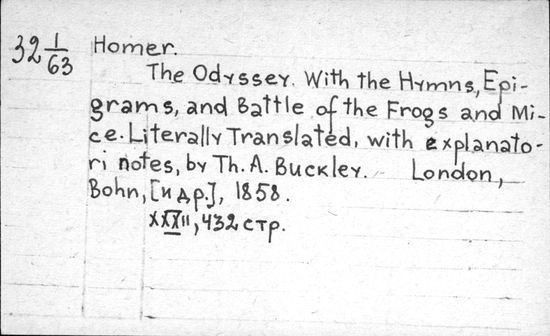 32 1/63 Homer.
The Odyssey. With the Hymns, Epi-
grams, and Battle of the Frogs and Mi-
ce. Literally Translated, with explanato-
ri notes, by Th. A. Buckley. London,
Bohn, [и др.], 1858.
XXXII, 432 стр.